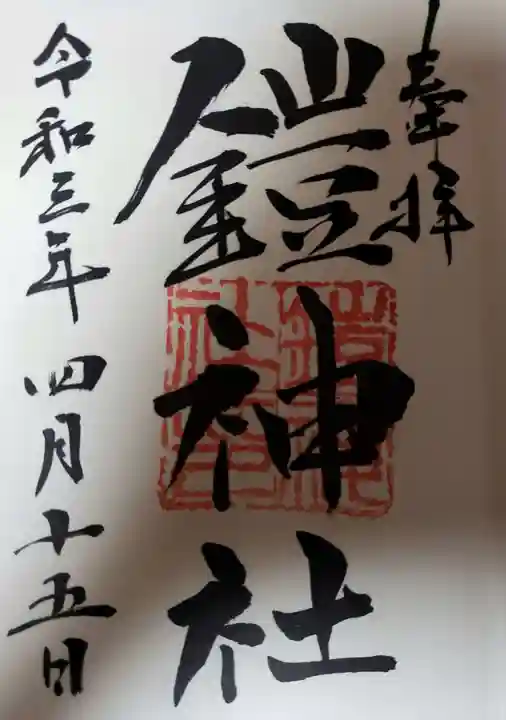 奉拝
鎧神社
令和三年四月十五日